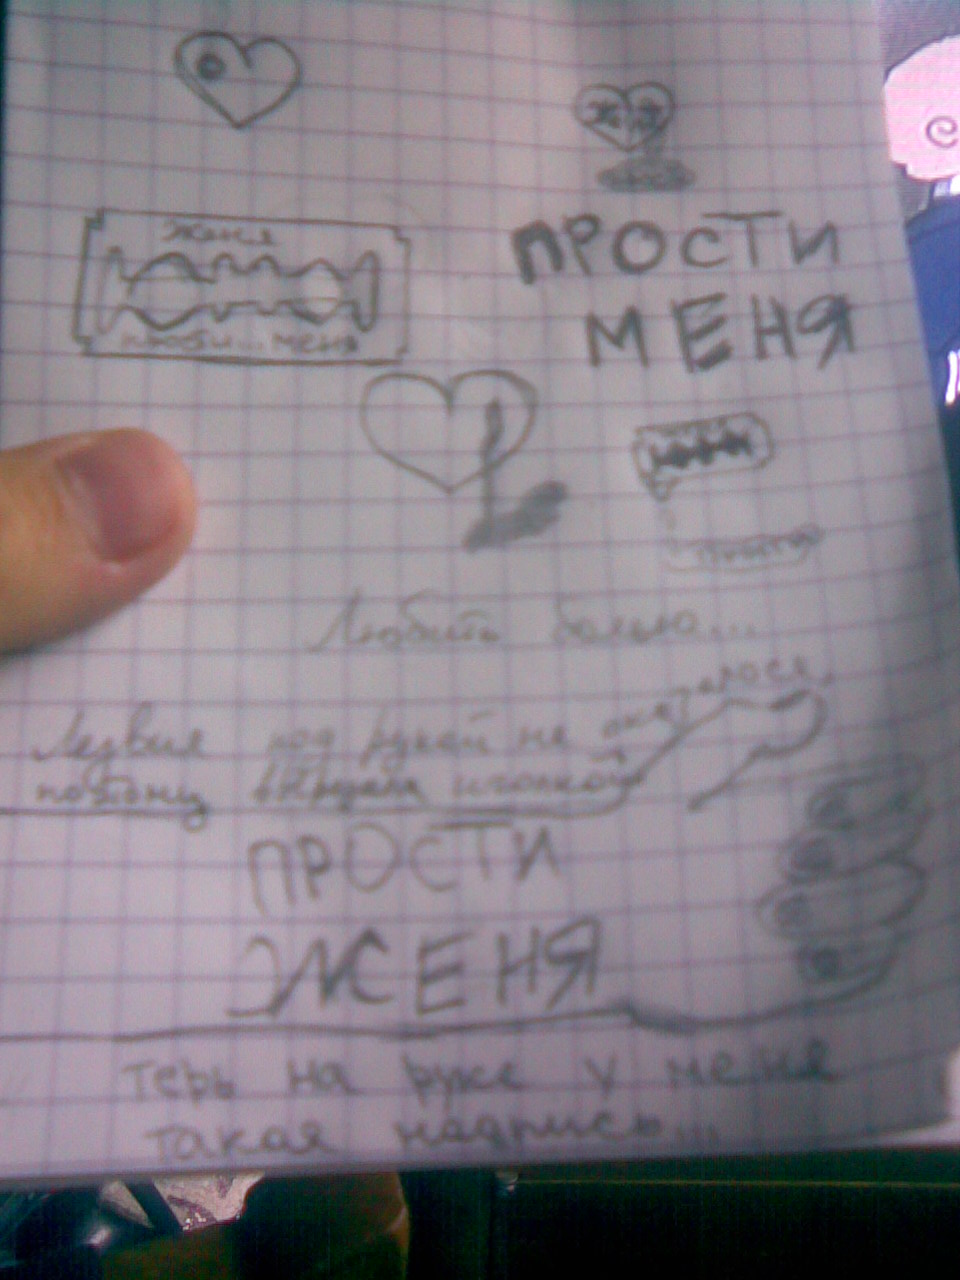 Женя
люби... меня
ПРОСТИ
МЕНЯ
Любить больно...
Лезвия под рукой не оказалось,
поэтому иголкой
ПРОСТИ
ЖЕНЯ
терь на руке у меня
такая надпись...